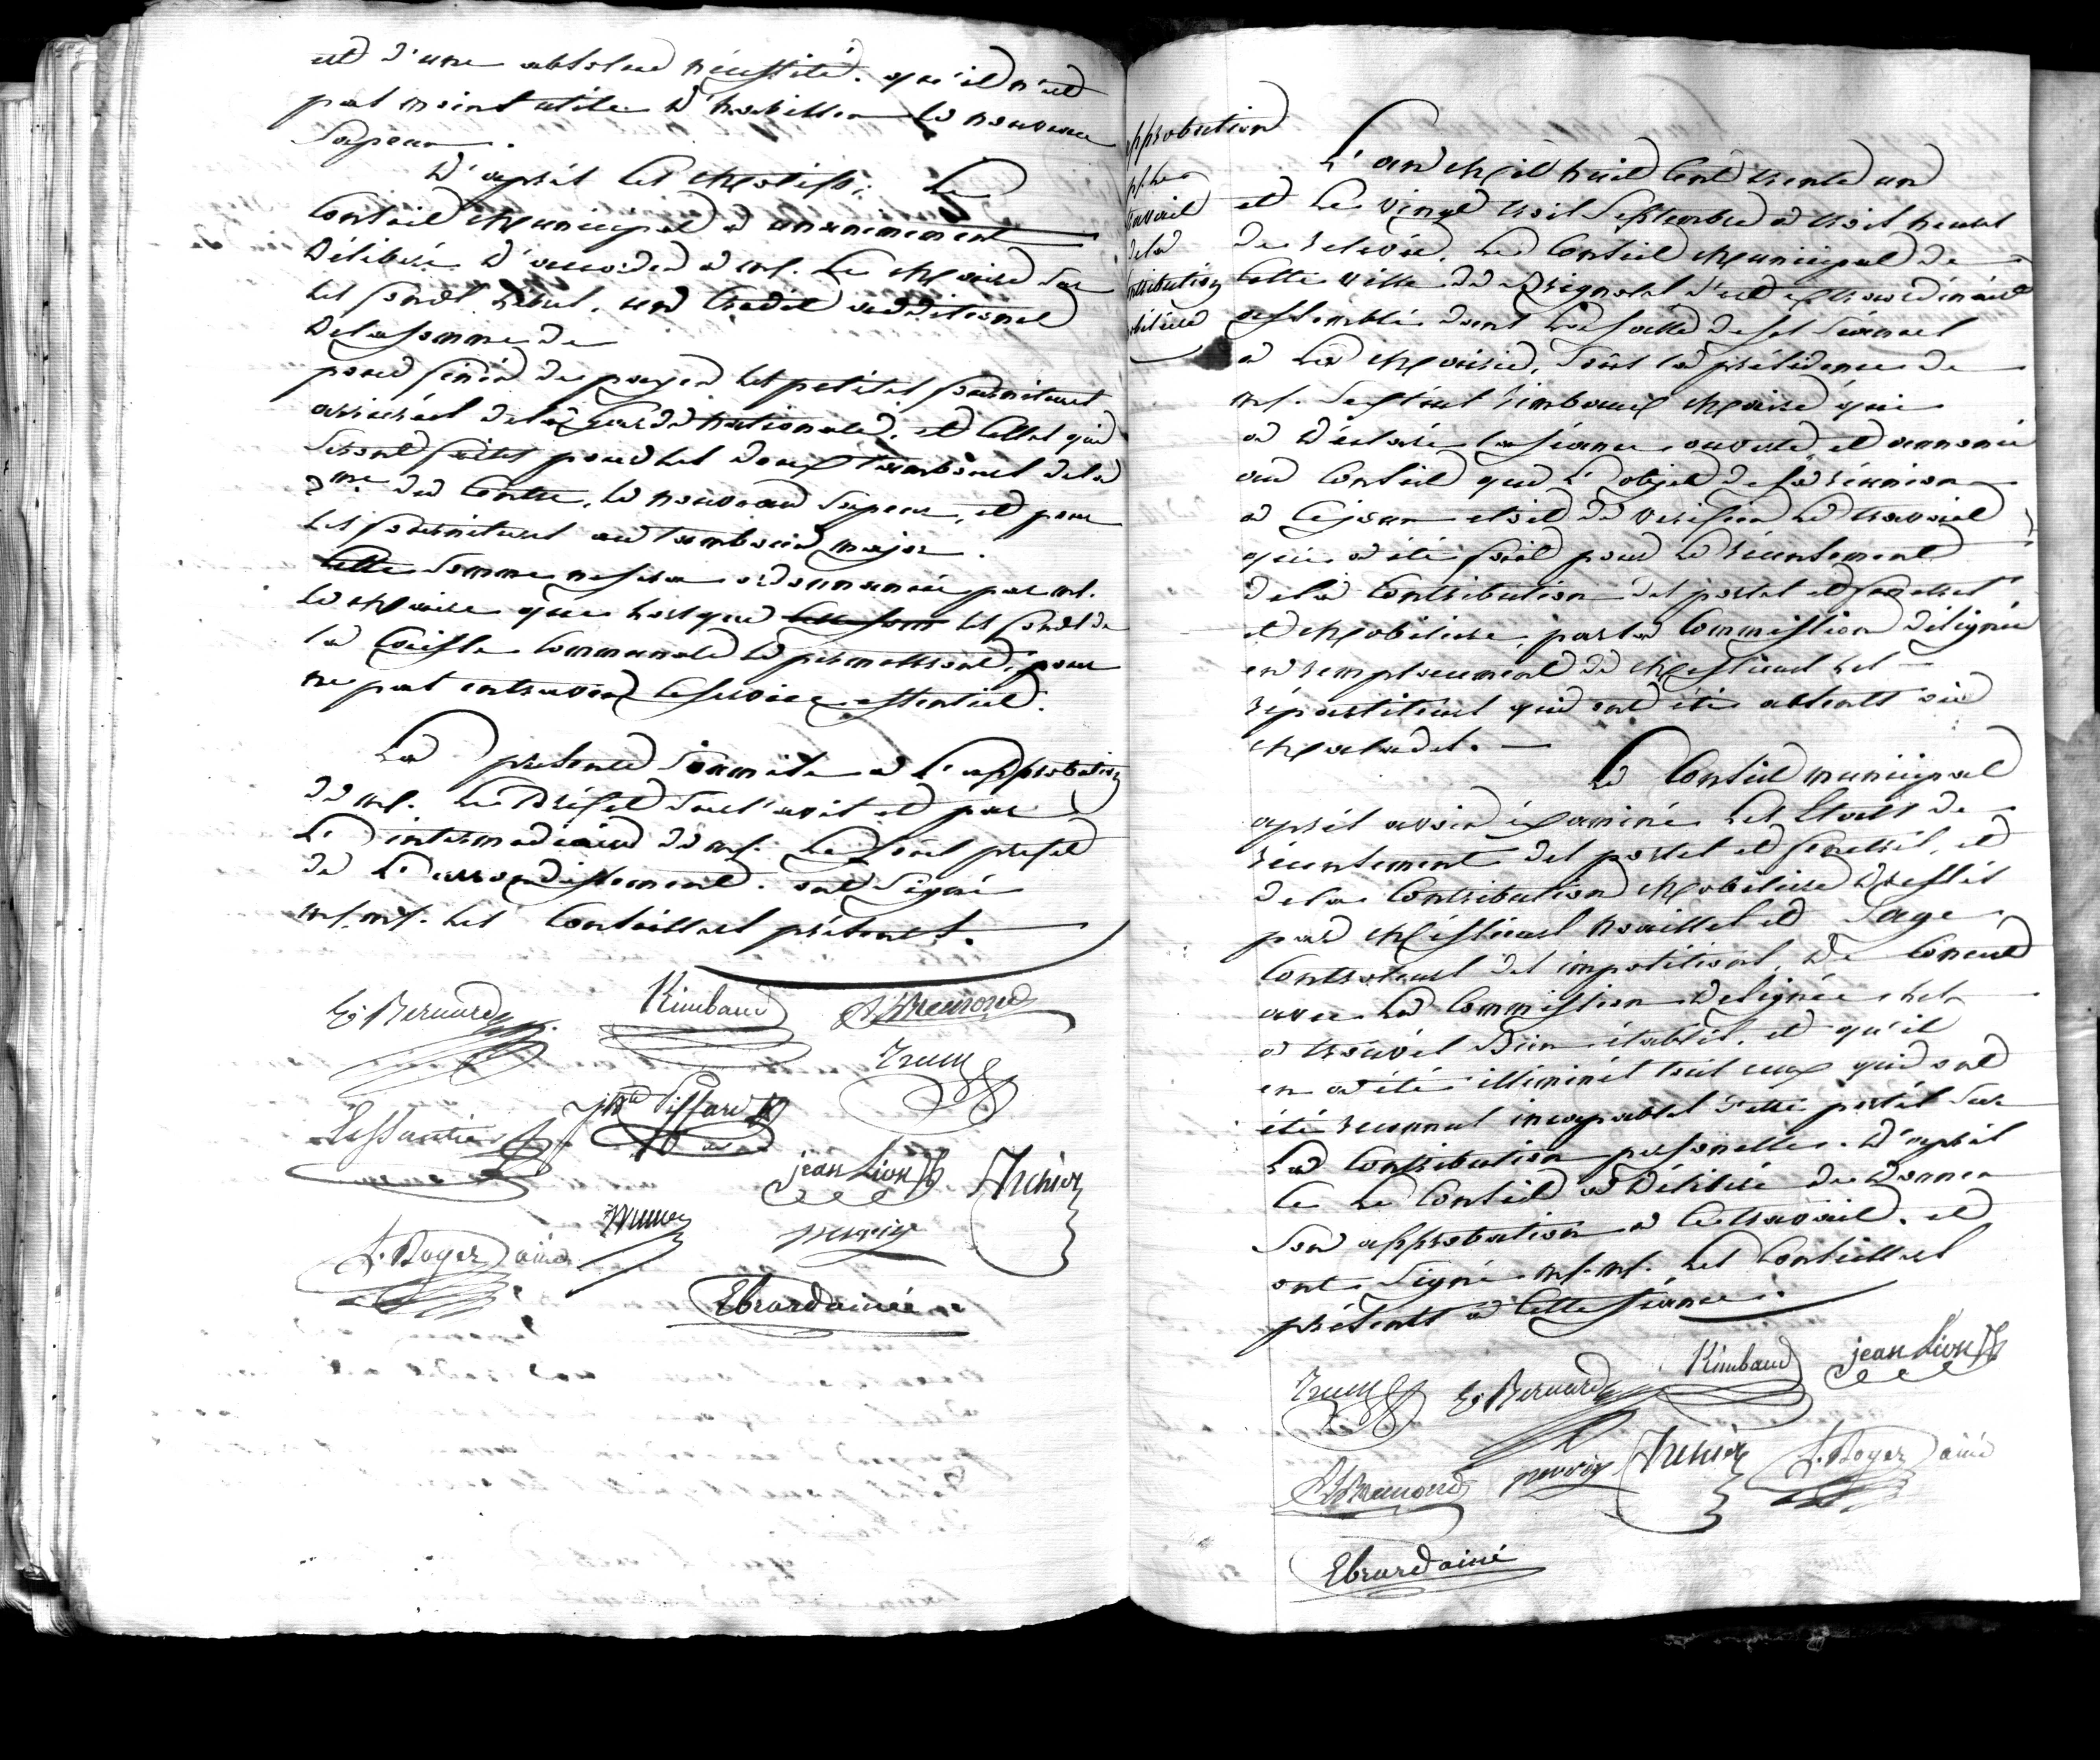 est d'une absolue nécessité. qu'il n'est
pas moins utile d'habiller le nouveau
Sapeur.
D'après ces Motifs: Le
Conseil Municipal a unanimement
Délibéré d'accorder a mr. Le Maire Sur
les fonds libres, un Credit additionel
de la somme de
pour servir de payer les petites fournitures
arrierées de la garde nationale, et Celles qui
Seront faites pour les deux tambours de la
2me du Centre, le nouveau Sapeur, et pour
les fournitures au tambour major.
Cette Somme ne sera ordonnancée par mr.
le Maire que lorsque les fonds de
la Caisse Communale le permettront, pour
ne pas entraver le service essentiel.
La présente Soumise a l'approbation
de mr. Le Préfet Sur l'avis et par
L'intermédiaire de mr. Le Sous prefet
de L'arrondissement. ont Signé
mr. mr. les Conseillers présents.
Es Bernard Rimbaud
jean Lion
Archier
f. Boyer ainé
Ebrard ainée
approbation
Travail
de la
Contribution
Mobiliere
L'an Mil huit Cent trente un
et Le vingt trois Septembre a trois heures
de relevée. Le Conseil Municipal de
Cette ville de Brignoles s'est extraordinairt
assemblé dans la salle de ses Séances
a La Mairie, Sous la présidence de
mr. Rimbaud Maire qui
a déclaré la séance ouverte, et annoncé
au Conseil que L'objet de sa réunion
a ce jour etoit de verifier le travail
qui a été fait pour le récensement
de la Contribution des portes et fenetres
et Mobiliere, par la Commission déléguée
en remplacement de Messieurs les
répartiteurs qui ont été absents où
Malades.
Le Conseil municipal
après avoir éxaminé les Etats de
récensement des portes et fenetres, et
de la Contribution Mobiliere dressés
par Messieurs Noaillet et Sage
Controleurs des impositions, de Concert
avec La Commission deleguée, les
a trouvés Bien établis, et qu'il
en a été illiminés tous ceux qui ont
été reconnus incapables d'etre portés Sur
La Contribution personelle. D'après
Ce Le Conseil a Délibéré de donner
Son approbation a Ce travail. et
ont Signé mr. mr. Les Conseillers
présents a Cette séance.
Es Bernard Rimbaud jean Lion
Archier f. Boyer ainé
Ebrard ainé